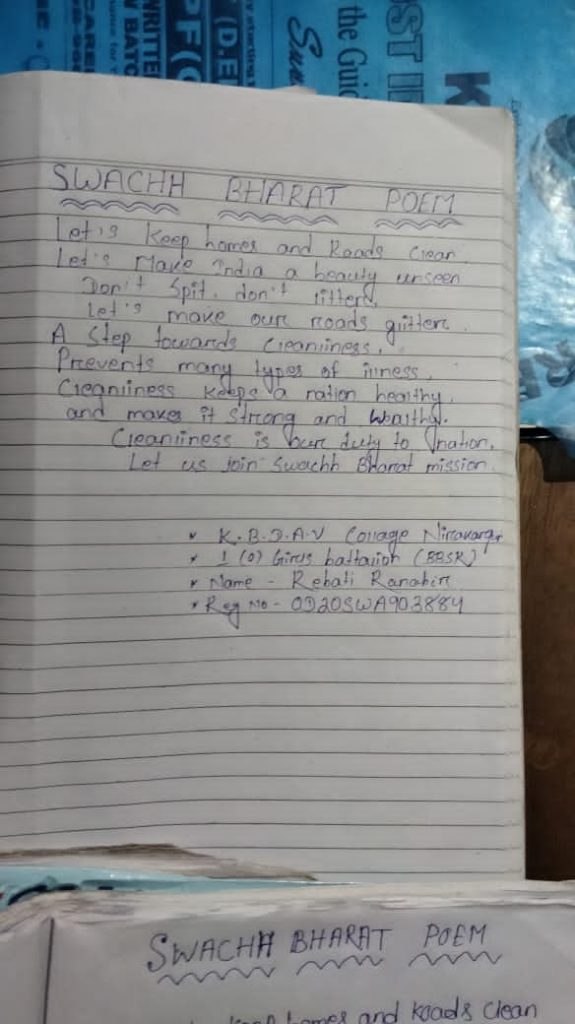 WRITTEN
(D.E
the Guid
ST I
K
SWACHH BHARAT POEM
Let's Keep homes and Roads clean.
Let's Make India a beauty unseen
Don't Spit, don't litter,
Let's make our roads glitter.
A Step towards Cleanliness.
Prevents many types of illness.
Cleanliness keeps a nation healthy.
and makes it strong and Wealthy.
Cleanliness is our duty to nation.
Let us join Swachh Bharat mission.
* K.B.D.A.V Collage
* 1 (O) Girls battalion (BBSR)
* Name - Rebati
* Reg No - OD20SWA903884
SWACHH BHARAT POEM
Keep homes and Roads Clean